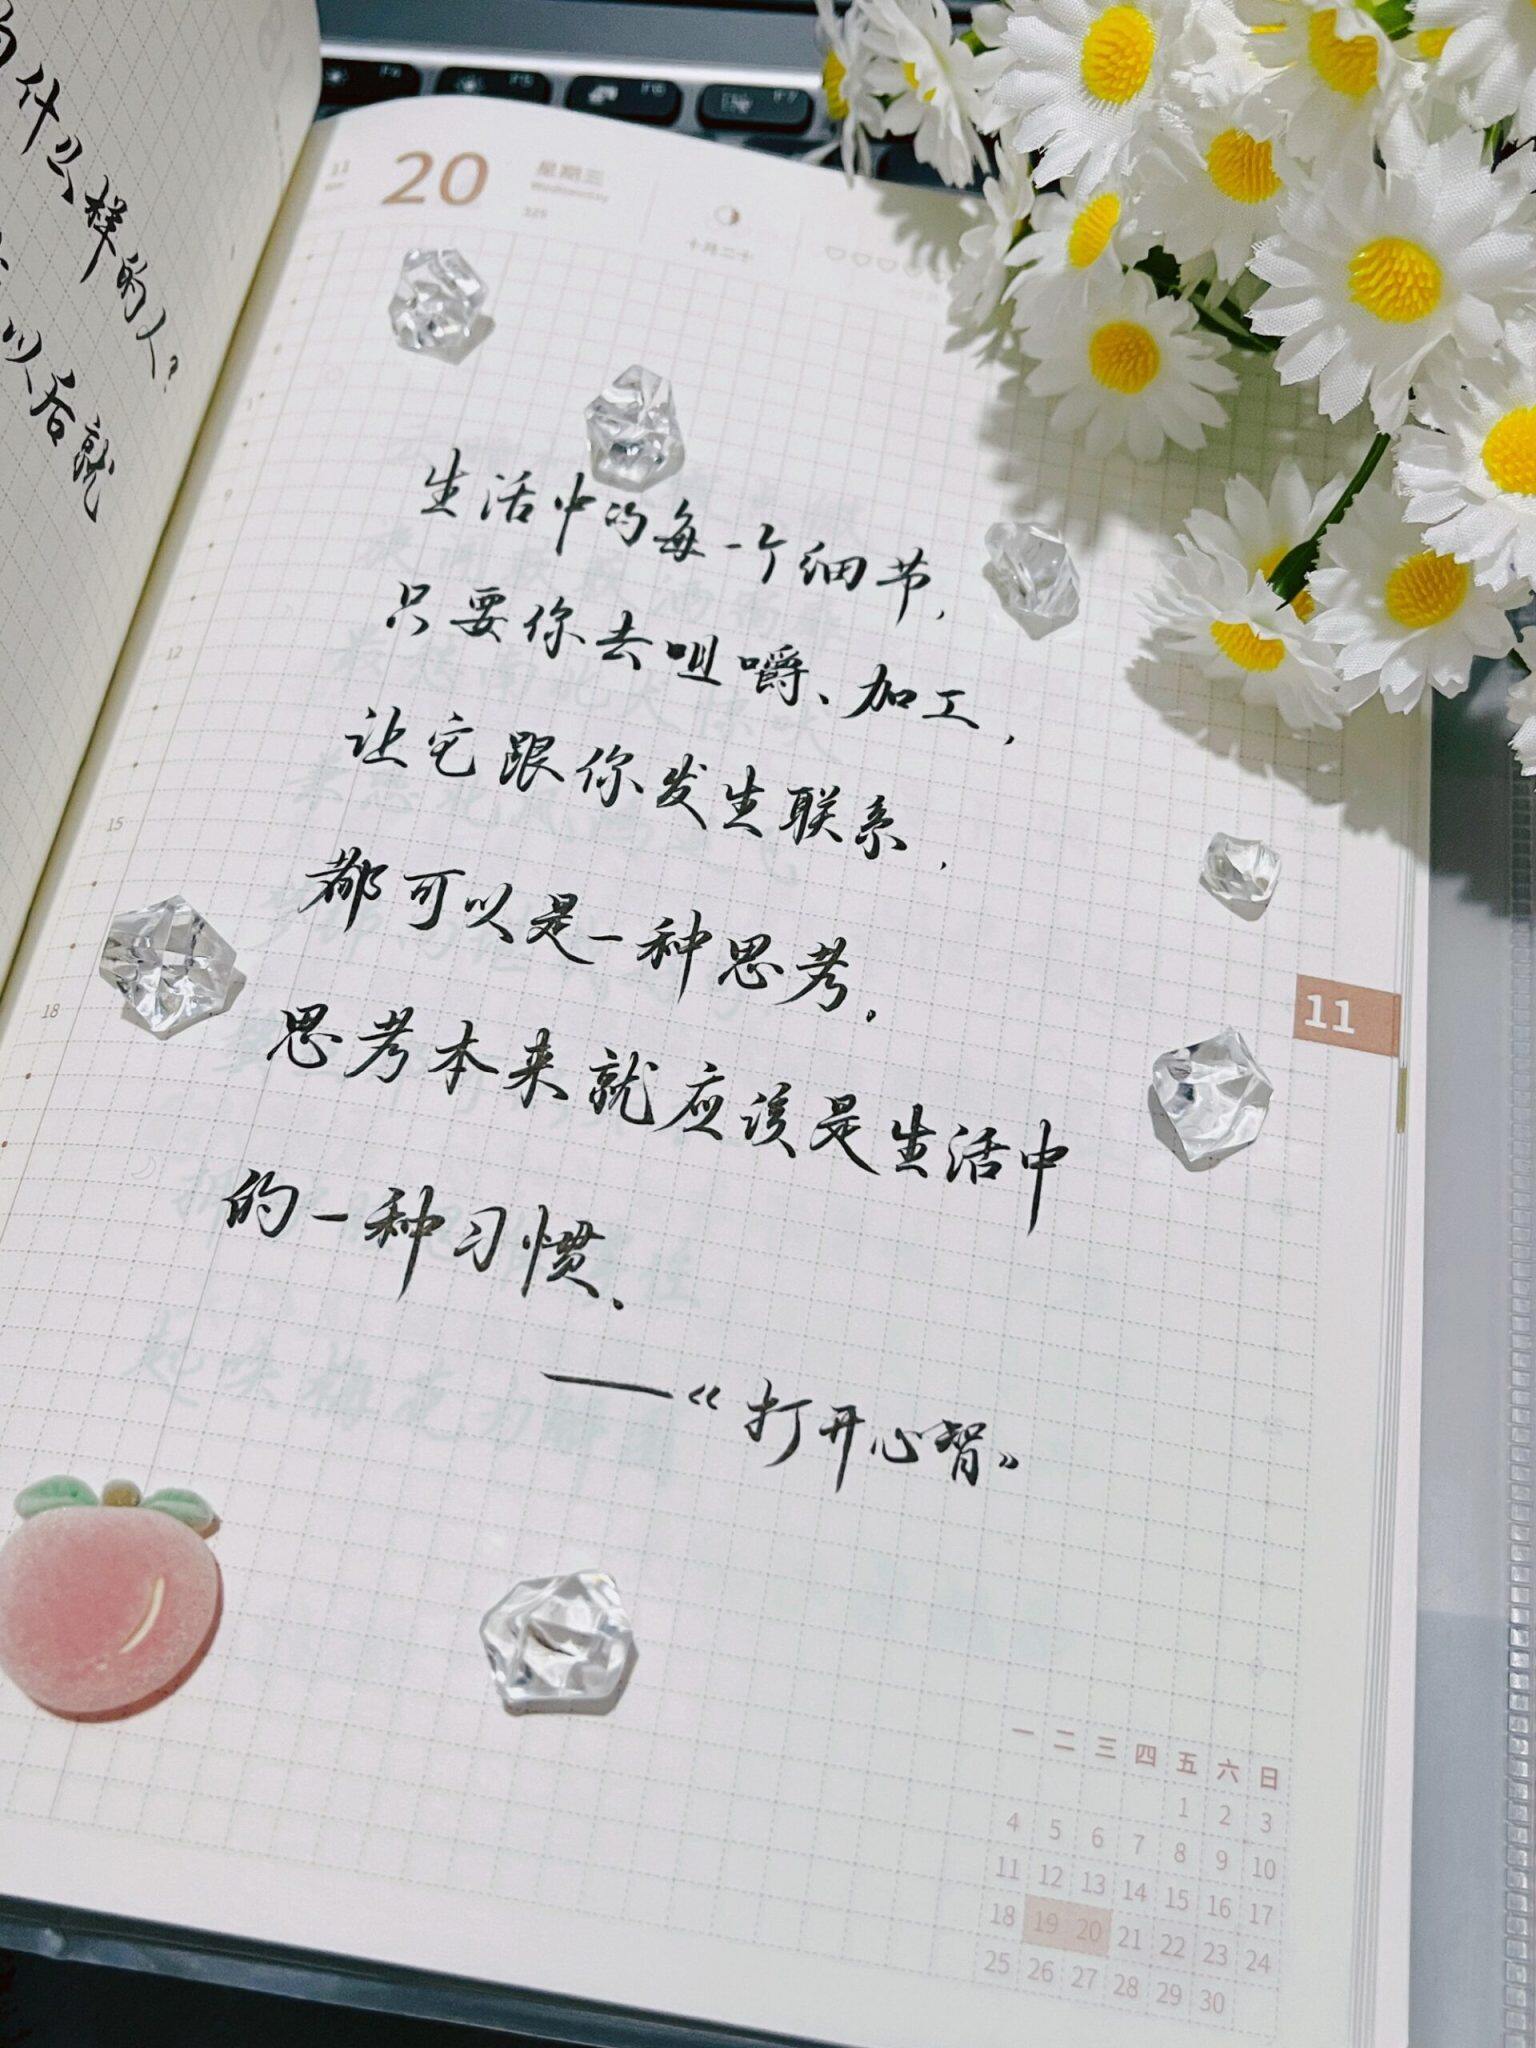 什么样的人?
以后就
F4 F5 F6 F7
11
20 星期三
Wednesday
325
十月二十
生活中的每一个细节,
只要你去咀嚼、加工,
让它跟你发生联系,
都可以是一种思考.
思考本来就应该是生活中
的一种习惯.
——《打开心智》
9
12
15
18
11
一 二 三 四 五 六 日
1 2 3
4 5 6 7 8 9 10
11 12 13 14 15 16 17
18 19 20 21 22 23 24
25 26 27 28 29 30